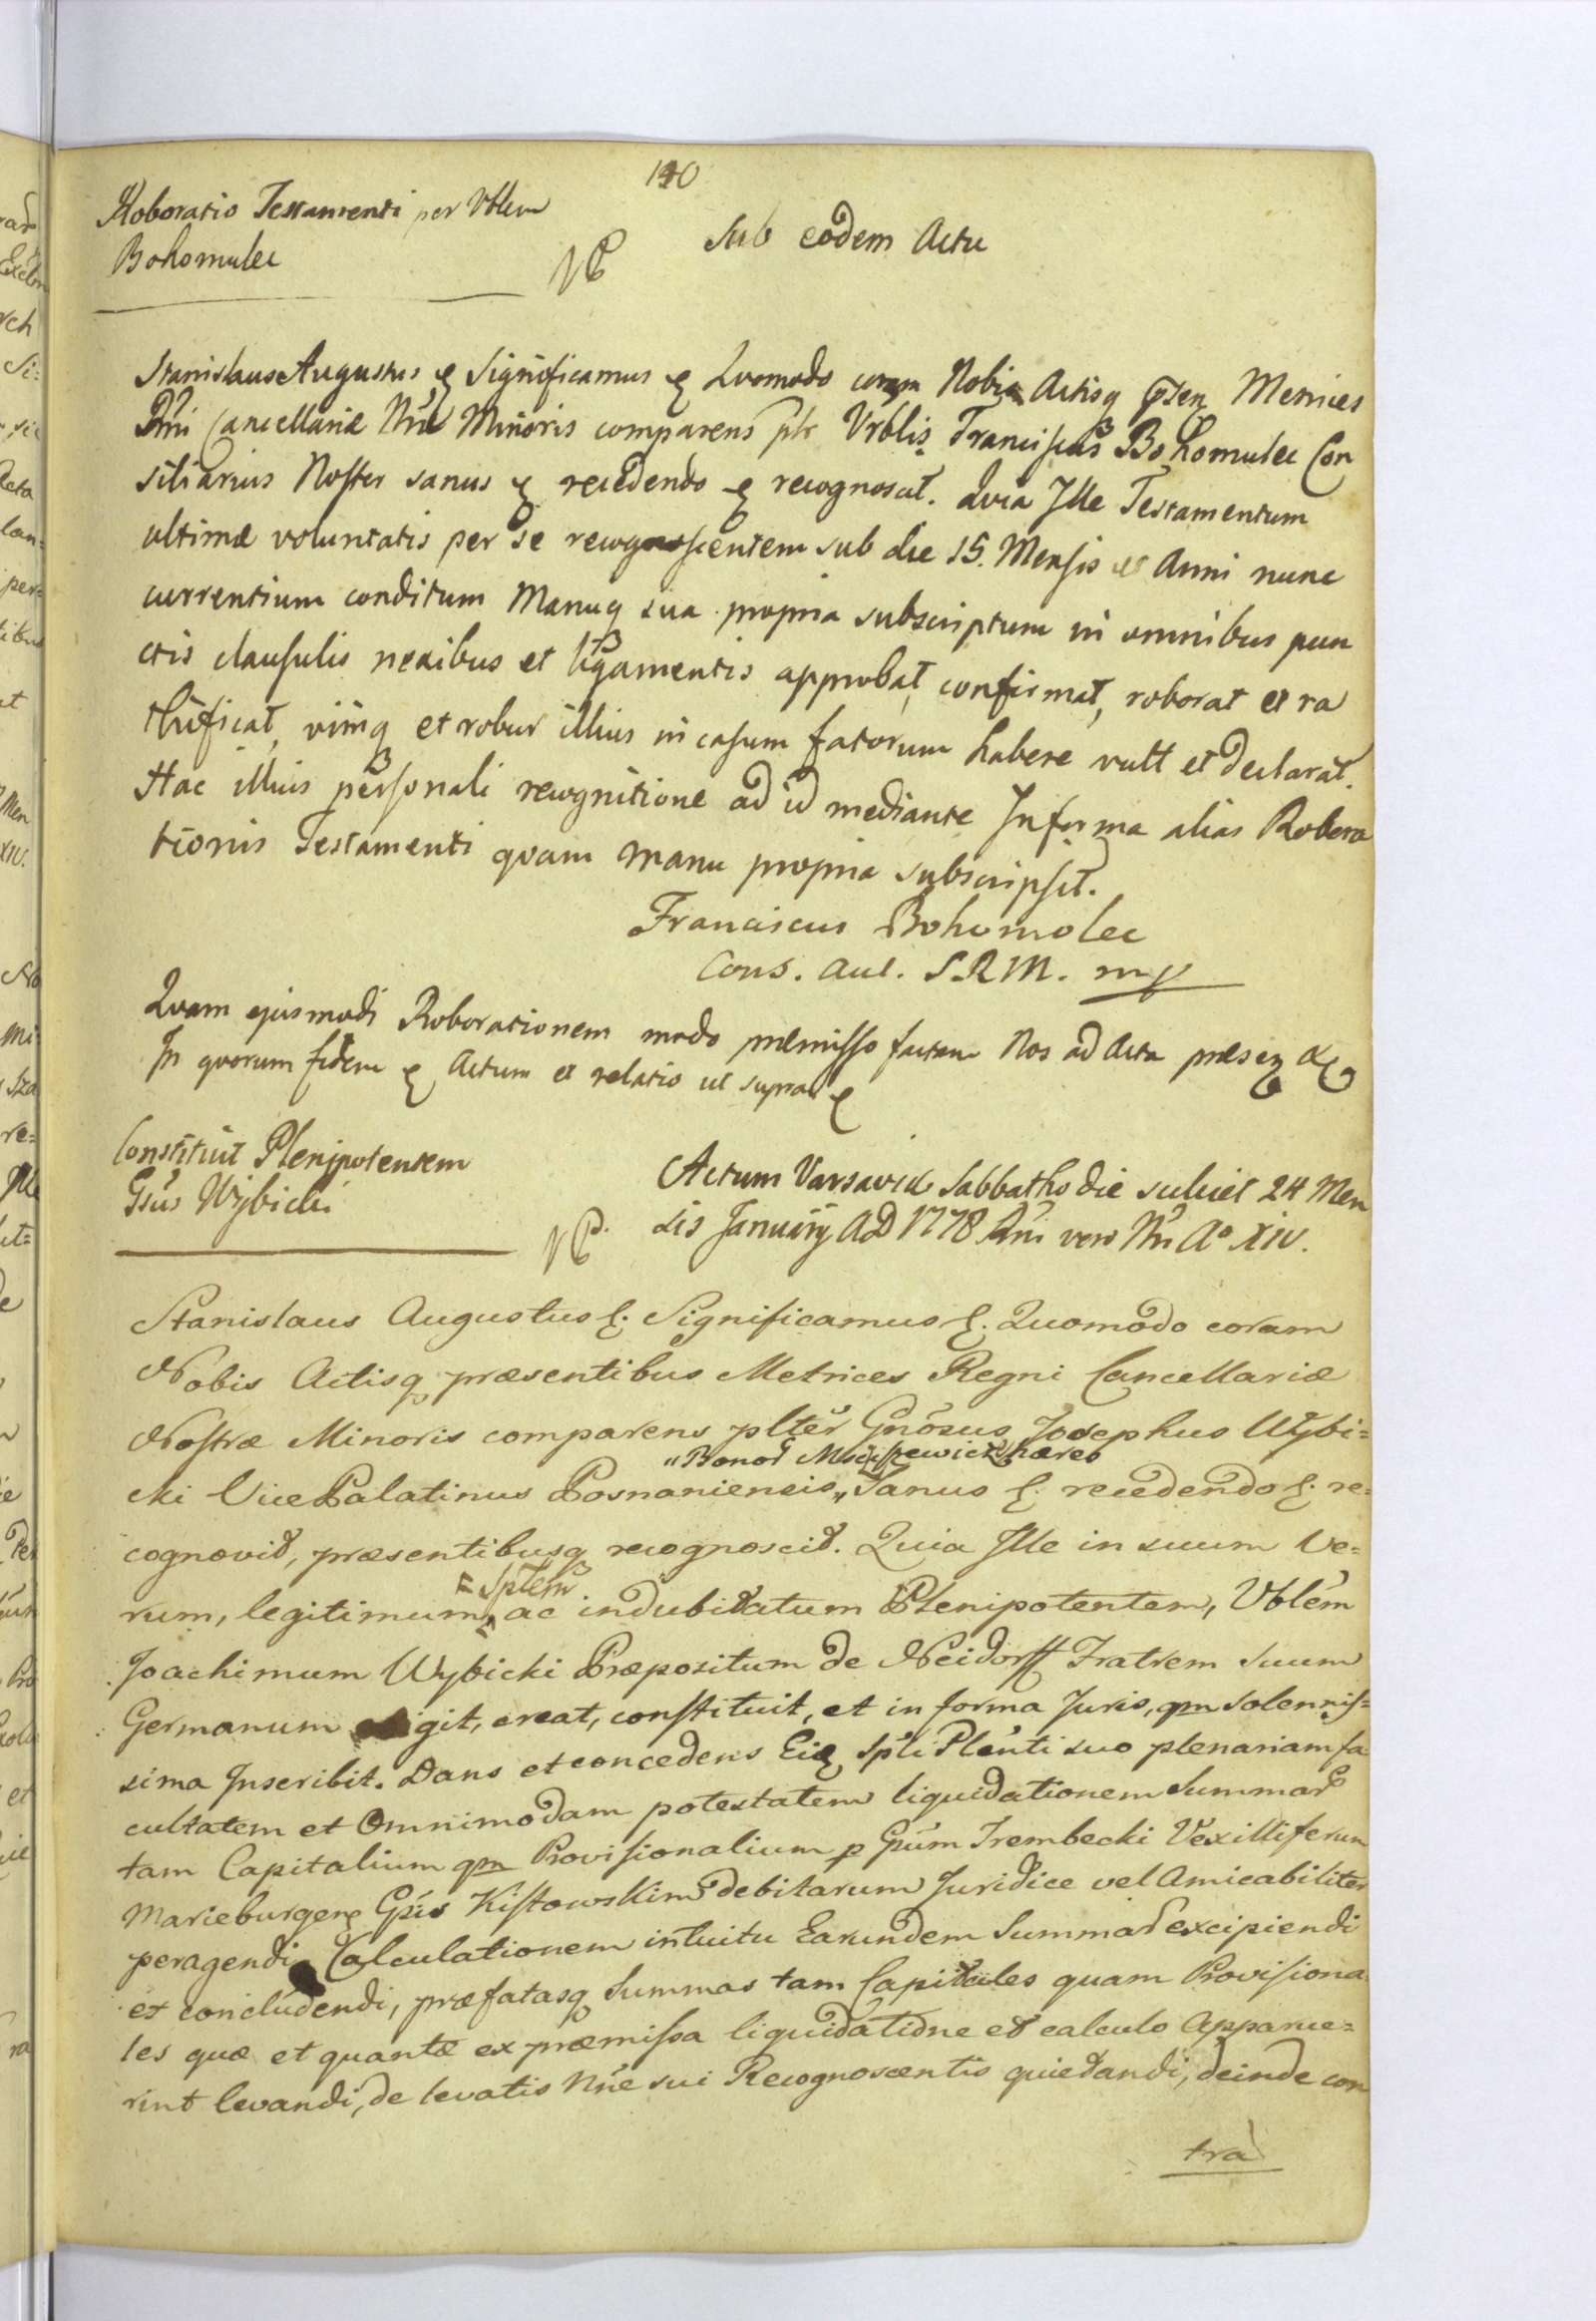 140
Roboratio Testamenti per Vblem
Bohomulec
Sub eodem Actu
Stanislaus Augustus Significamus Quomodo coram Nobis Actisq pten Metrices
Rni Cancellariæ Nræ Minoris comparens pltr Vrblis Franciscus Bohomulec Con
siliarius Noster sanus recedendo recognoscit. Quia Ille Testamentum
ultimæ voluntatis per se recognoscentem sub die 15. Mensis et Anni nunc
currentium conditum Manuq sua propria subscriptum in omnibus pun
ctis clausulis nexibus et ligamentis approbat, confirmat, roborat et ra
thificat, vimq et robur illius in casum fatorum habere vult et declarat.
Hac illius personali recognitione ad id mediante Informa alias Robora
tionis Testamenti quam manu propria subscripsit.
Franciscus Bohomolec
Cons. Aul. S.R.M. mp
Quam ejusmodi Roborationem modo præmisso factam Nos ad Acta præsen
In quorum fidem Actum et relatio ut supra
Constituit Plenipotentem
Gsus Wybicki
Actum Varsaviæ Sabbatho die scilicet 24 Men
sis Januarÿ AD 1778 Rni vero Nri A° XIV.
Stanislaus Augustus Significamus Quomodo coram
Nobis Actisq præsentibus Metrices Regni Cancellariæ
Nostræ Minoris comparens plter Gnosus Josephus Wybi=
"Bonor hæres
cki Vice Palatinus Posnaniensis„ Sanus recedendo re=
cognovit, præsentibusq recognoscit. Quia Ille in suum Ve=
Splem
rum, legitimum, ac indubitatum Plenipotentem, Vblem
Joachimum Wybicki Præpositum de Neidorff Fratrem Suum
Germanum eligit, creat, constituit, et in forma Juris, qm solennis=
sima Inscribit. Dans et concedens Eid Spli Plenti suo plenariam fa
cultatem et Omnimodam potestatem liquidationem Summar
tam Capitalium qm Provisionalium p Gsum Trembecki Vexilliferum
Marieburgen Gsis Kistowskim debitarum Juridice vel Amicabiliter
peragendi, Calculationem intuitu Earundem Summar excipiendi
et concludendi, præfatasq Summas tam Capitales quam Provisiona
les quæ et quantæ ex præmissa liquidatione et calculo Apparue=
rint levandi, de levatis Nne sui Recognoscentis quietandi, deinde con
tra